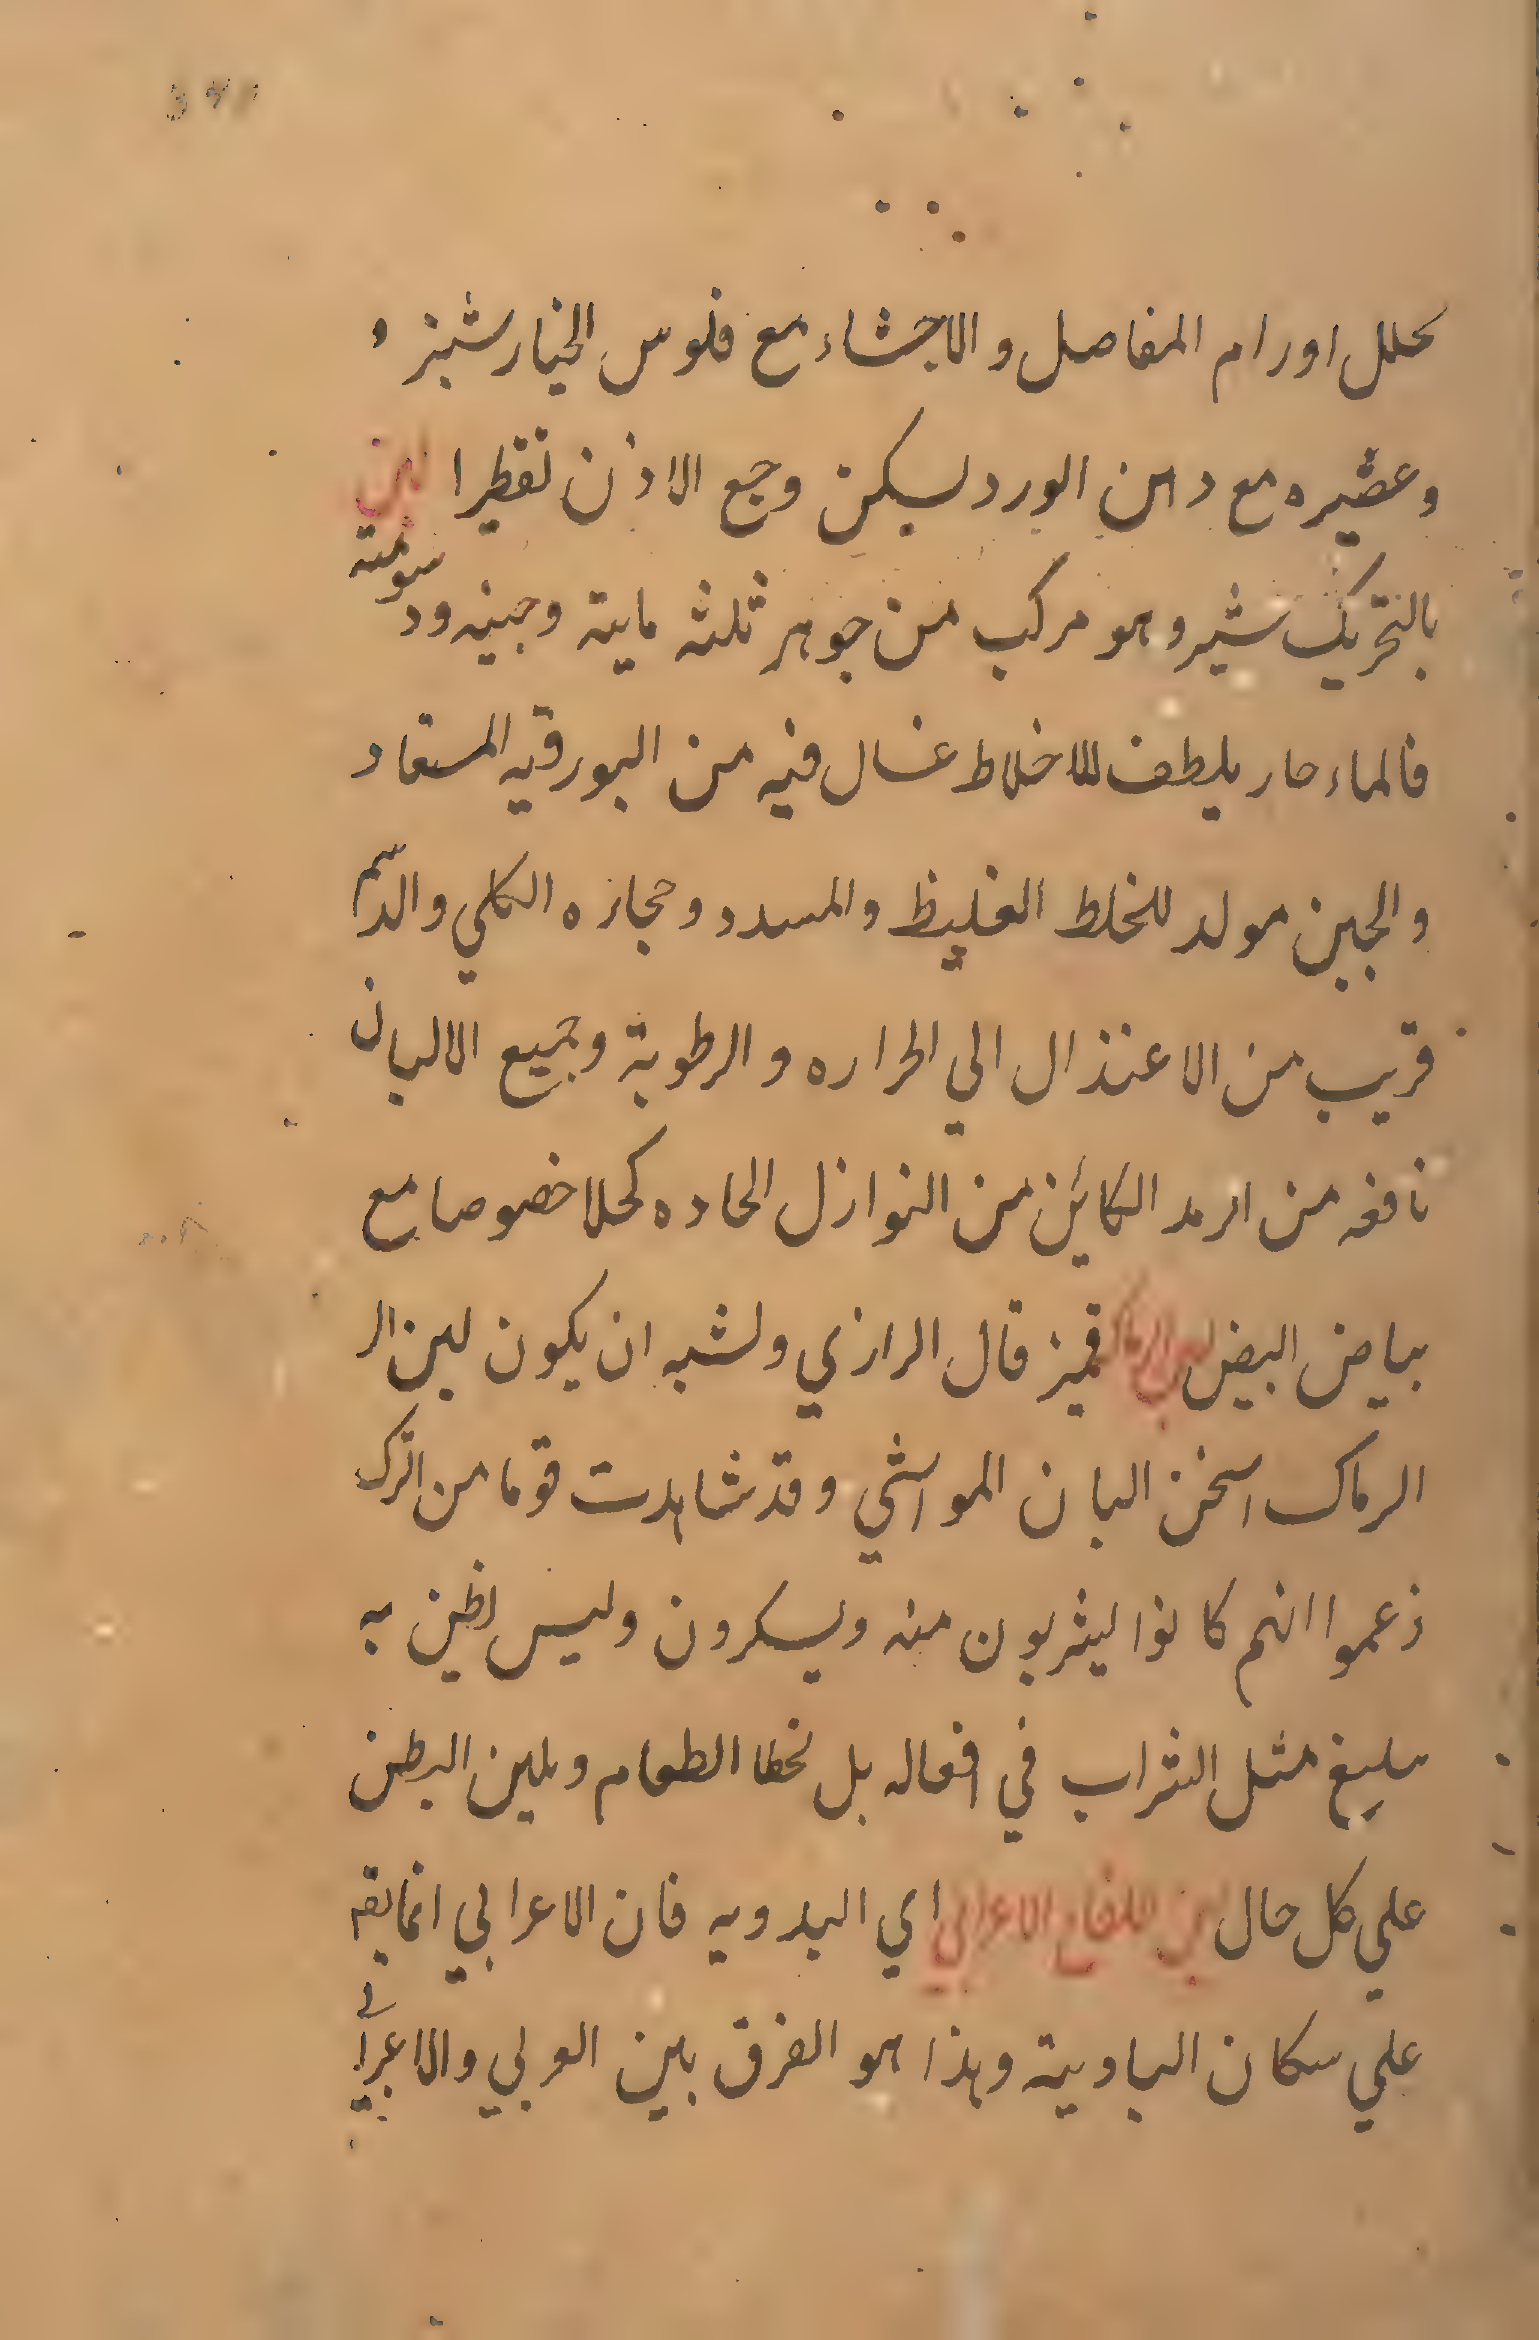 محلل اورام المفاصل والاحشاء مع فلوس الخيارشنبر و
وعصيره مع دهن الورد يسكن وجع الاذن تقطيرا لبن
بالتحريك شير وهو مركب من جوهر ثلثه مايتة وجبنيه ودسومته
فالماء حار يلطف للاخلاط غسال فيه من البورقيه المستفاد
والجبن مولد للخلط الغليظ والمسدد وحجاره الكلي والدسم
قريب من الاعتدال الي الحراره والرطوبة وجميع الالبان
نافعه من الرمد الكائين من النوازل الحاده كحلا خصوصا مع
بياض البيض لبن الرماك قميز قال الرازي ويشبه ان يكون لبن الر
الرماك اسخن البان المواشي وقد شاهدت قوما من اترك
زعموا انهم كانوا يشربون منه ويسكرون وليس اظن به
يبليغ مثل الشراب في افعاله بل يخطا الطعام ويلين البطن
علي كل حال لبن اللقاح الاعرابي اي البدويه فان الاعرابي انما يقع
علي سكان الباوية وهذا هو الفرق بين العربي والاعرابي